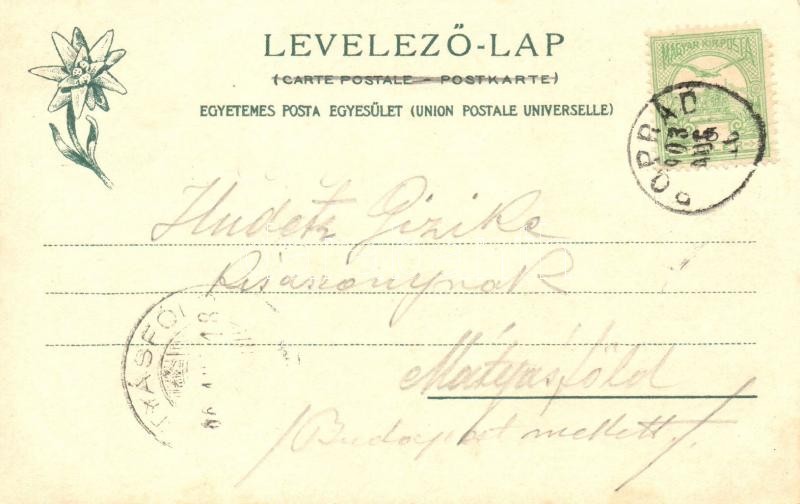 LEVELEZŐ-LAP
(CARTE POSTALE — POSTKARTE)
EGYETEMES POSTA EGYESÜLET (UNION POSTALE UNIVERSELLE)
MAGYAR KIR. POSTA
POPRÁD
903 AUG
Hudetz Gizike
kisasszonynak
Mátyásföld
/Budapest mellett/